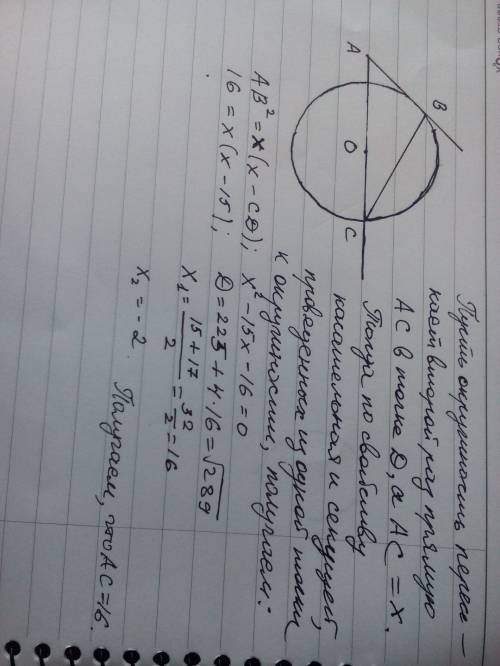 Пусть окружность пересе-
кает второй раз прямую
AC в точке D, а AC = x.
Тогда по свойству
касательная и секущей,
проведенных из одной точки
к окружности, получаем:
A
B
O
C
AB² = x(x - CD); x² - 15x - 16 = 0
16 = x(x - 15); D = 225 + 4·16 = √289
x₁ = (15 + 17)/2 = 32/2 = 16
x₂ = -2. Получаем, что AC = 16.